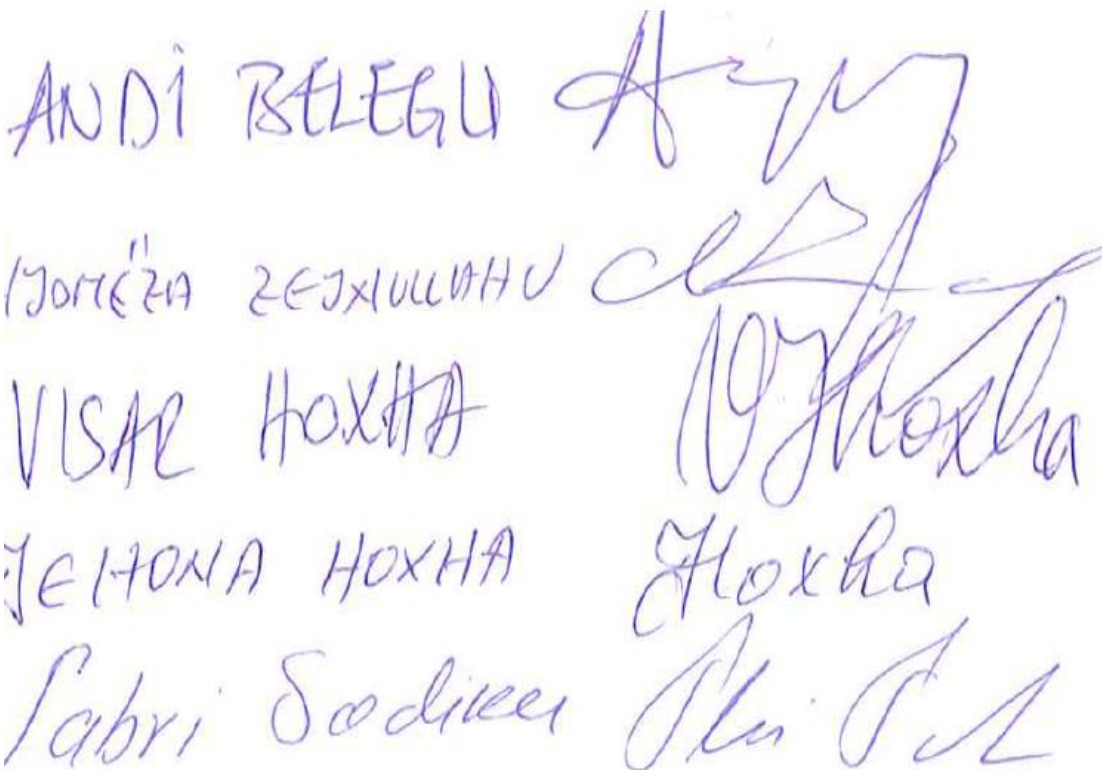 ANDI BELEGU
ZEJXIULLAHU
VISAR HOXHA VHoxha
JEHONA HOXHA JHoxha
Sabri Sadiku